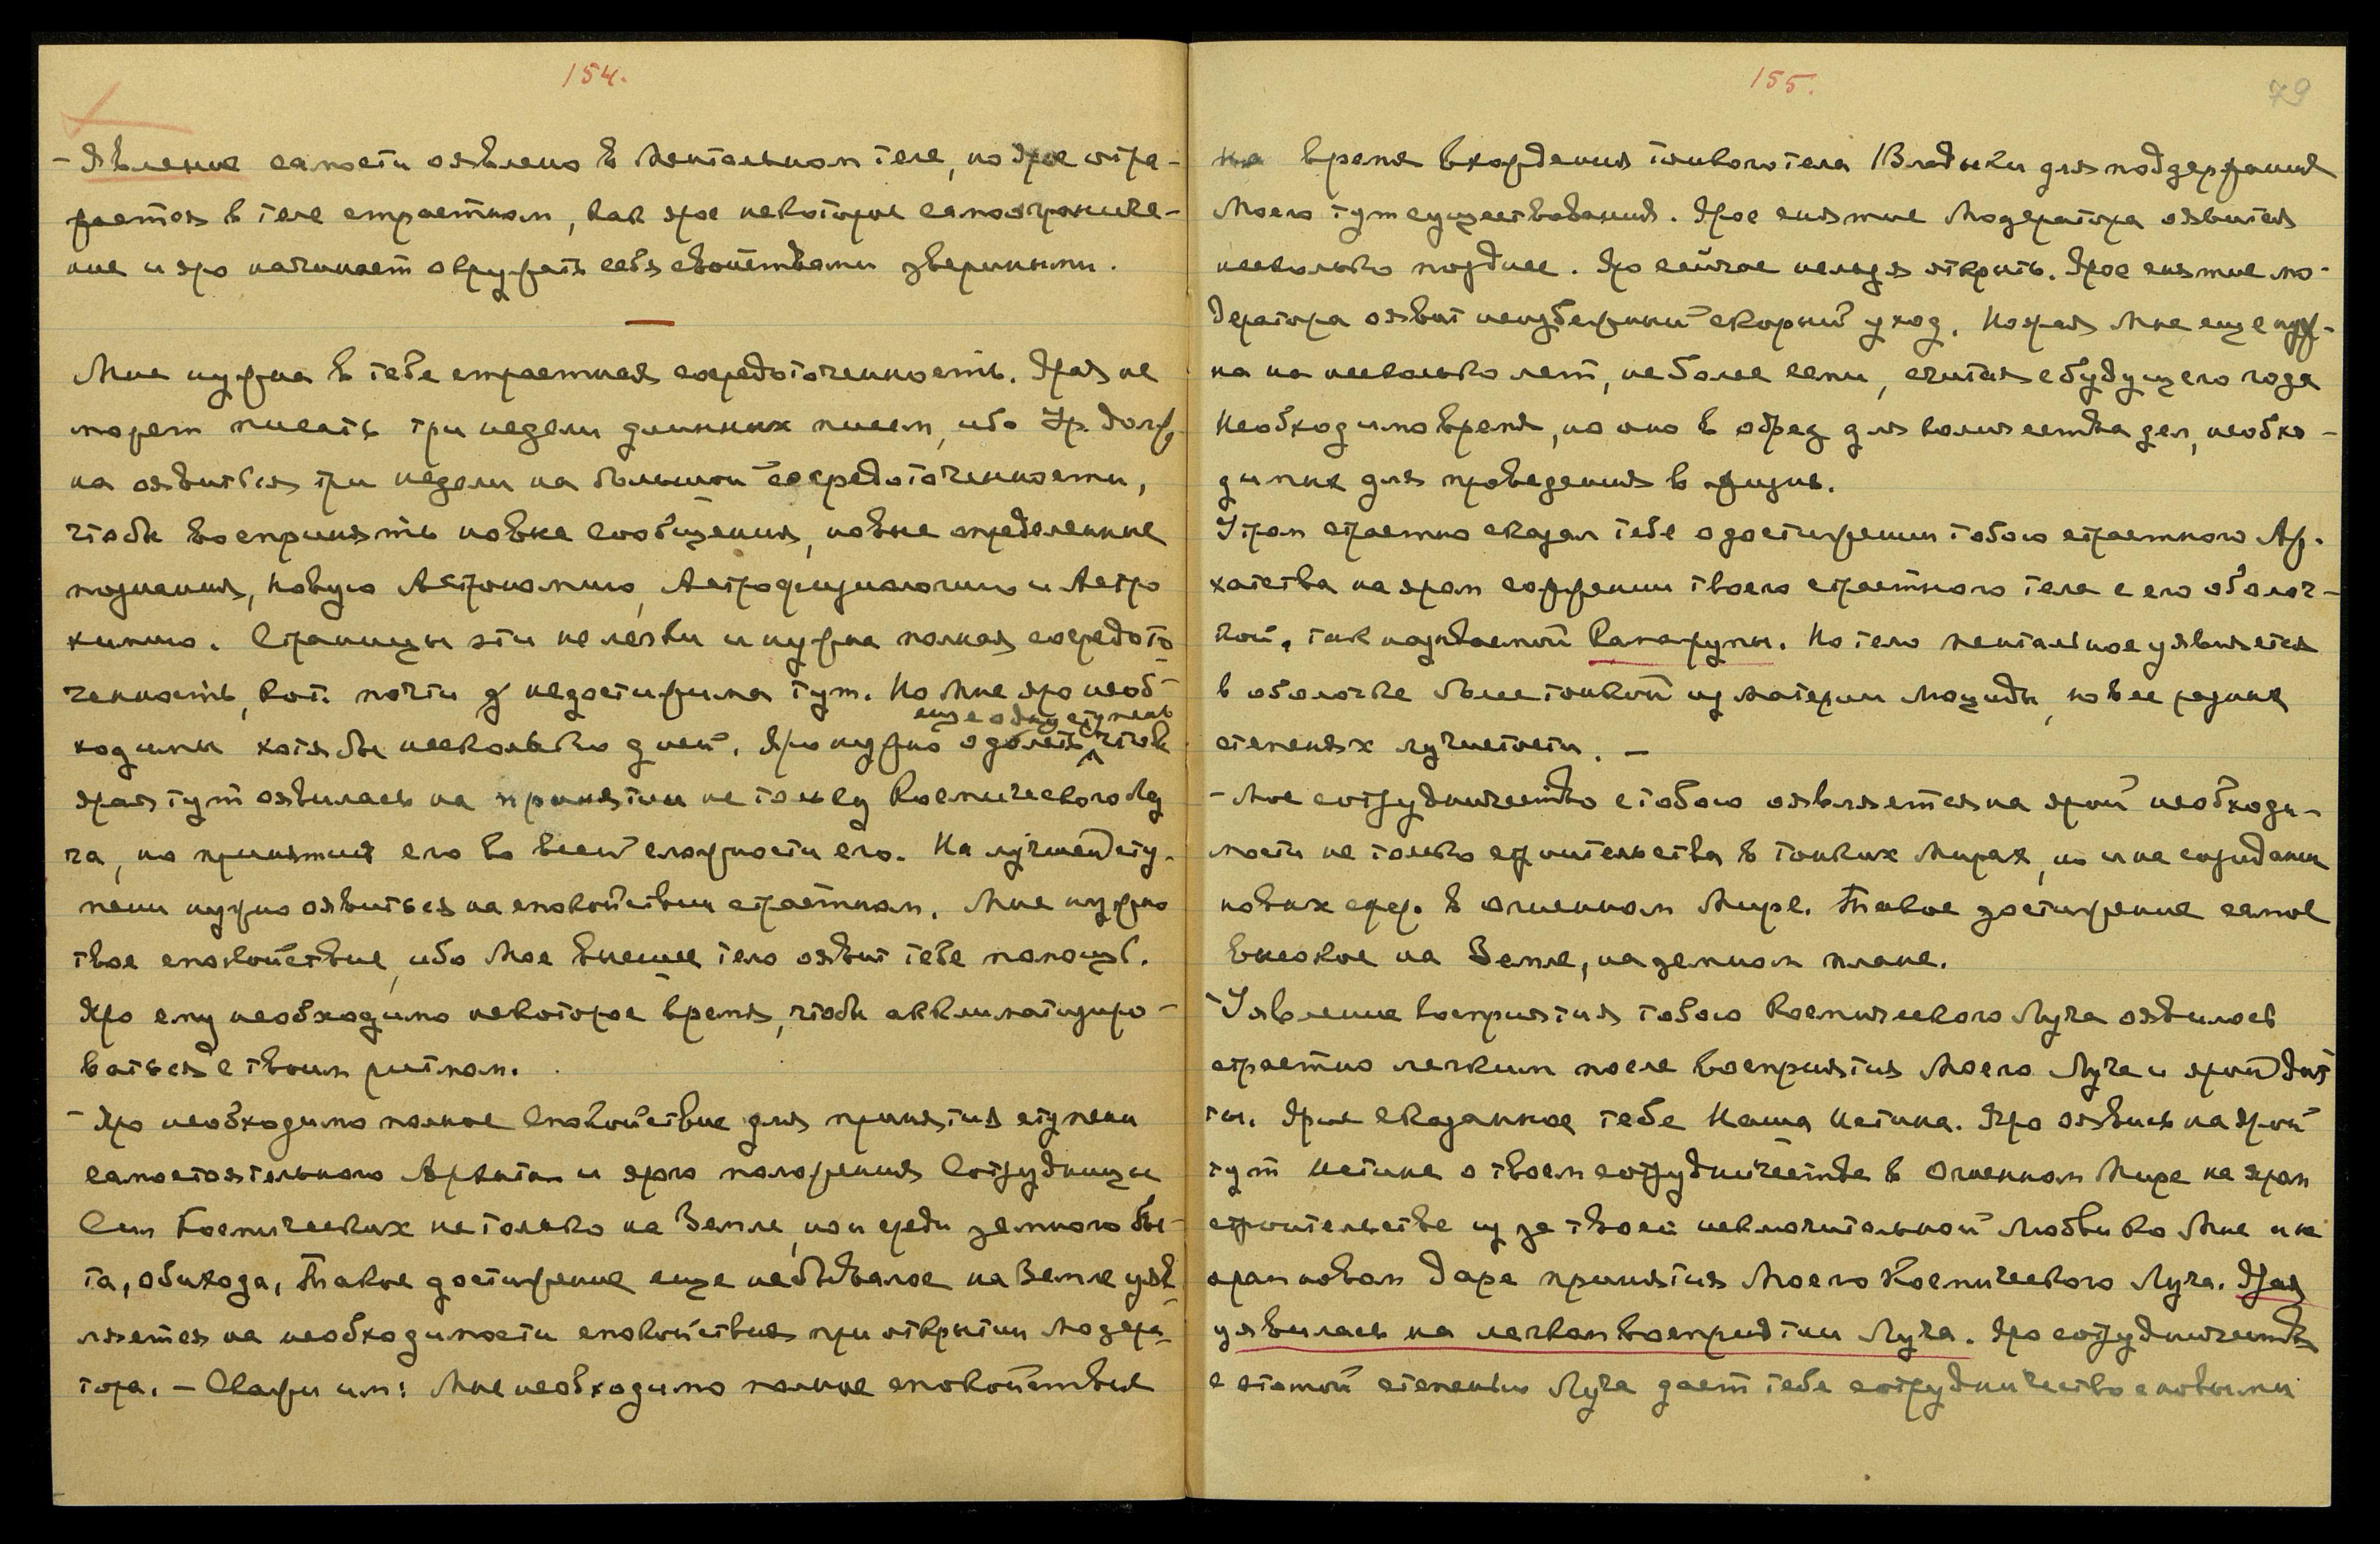 154.
- Явление самости оявлено в Ментальном теле, но ярое отра-
жается в теле страстном, как ярое некоторое самоограниче-
ние и яро начинает окружать себя свойствами звериными.
Мне нужна в тебе страстная сосредоточенность. Ярая не
может писать три недели длинных писем, ибо Ур. долж
на оявиться три недели на большой сосредоточенности,
чтобы воспринять новые сообщения, новые определенные
познания, новую Астрономию, Астрофизиологию и Астро
химию. Страницы эти не легки и нужна полная сосредото
ченность, кот. почти недостижима тут. Но Мне яро необ-
ходимы хотя бы несколько дней. Яро нужно одолеть еще одну ступень чтоб
ярая тут оявилась на принятии не только Космического Лу
ча, но принятия его во всей сложности его. На лучшей сту-
пени нужно оявиться на спокойствии страстном. Мне нужно
твое спокойствие, ибо Мое высшее тело оявит тебе помощь.
Яро ему необходимо некоторое время, чтобы акклиматизиро-
ваться с твоим ритмом.
- Яро необходимо полное спокойствие для принятия ступени
самостоятельного Архата и ярого положения Сотрудницы
Сил Космических не только на Земле, но и среди земного бы-
та, обихода, Такое достижение еще небывалое на Земле уяв
ляется на необходимости спокойствия при открытии модера-
тора. - Скажи им: Мне необходимо полное спокойствие
155.
79
на время вхождения тонкого тела Владыки для поддержания
Моего тут существования. Ярое снятие Модератора оявится
несколько позднее. Яро сейчас нельзя открыть. Ярое снятие мо-
дератора оявит неизбежный скорый уход. Но ярая Мне еще нуж-
на на несколько лет, не более семи, считая с будущего года
Необходимо время, но оно в обрез для количества дел, необхо-
димых для проведения в жизнь.
Утром страстно сказал тебе о достижении тобою страстного Ар-
хатства на яром сожжении твоего страстного тела с его оболоч-
кой, так называемой Камарупы. Но тело ментальное уявляется
в оболочке более тонкой из материи Люциды, но в ее разных
степенях лучистости. -
- Мое сотрудничество с тобою оявляется на ярой необходи-
мости не только строительства в тонких Мирах, но и на созидании
новых сфер. в Огненном Мире. Такое достижение самое
высокое на Земле, на земном плане.
- Уявление восприятия тобою Космического Луча оявилось
страстно легким после восприятия Моего Луча и ярой
ты. Ярое сказанное тебе Наша Истина. Яро оявись на ярой
тут Истине о твоем сотрудничестве в Огненном Мире на яром
строительстве из за твоей исключительной Любви ко Мне и на
яром новом даре принятия Моего Космического Луча. Ярая
уявилась на легком восприятии Луча. Яро сотрудничество
с этой степенью Луча дает тебе сотрудничество с новыми